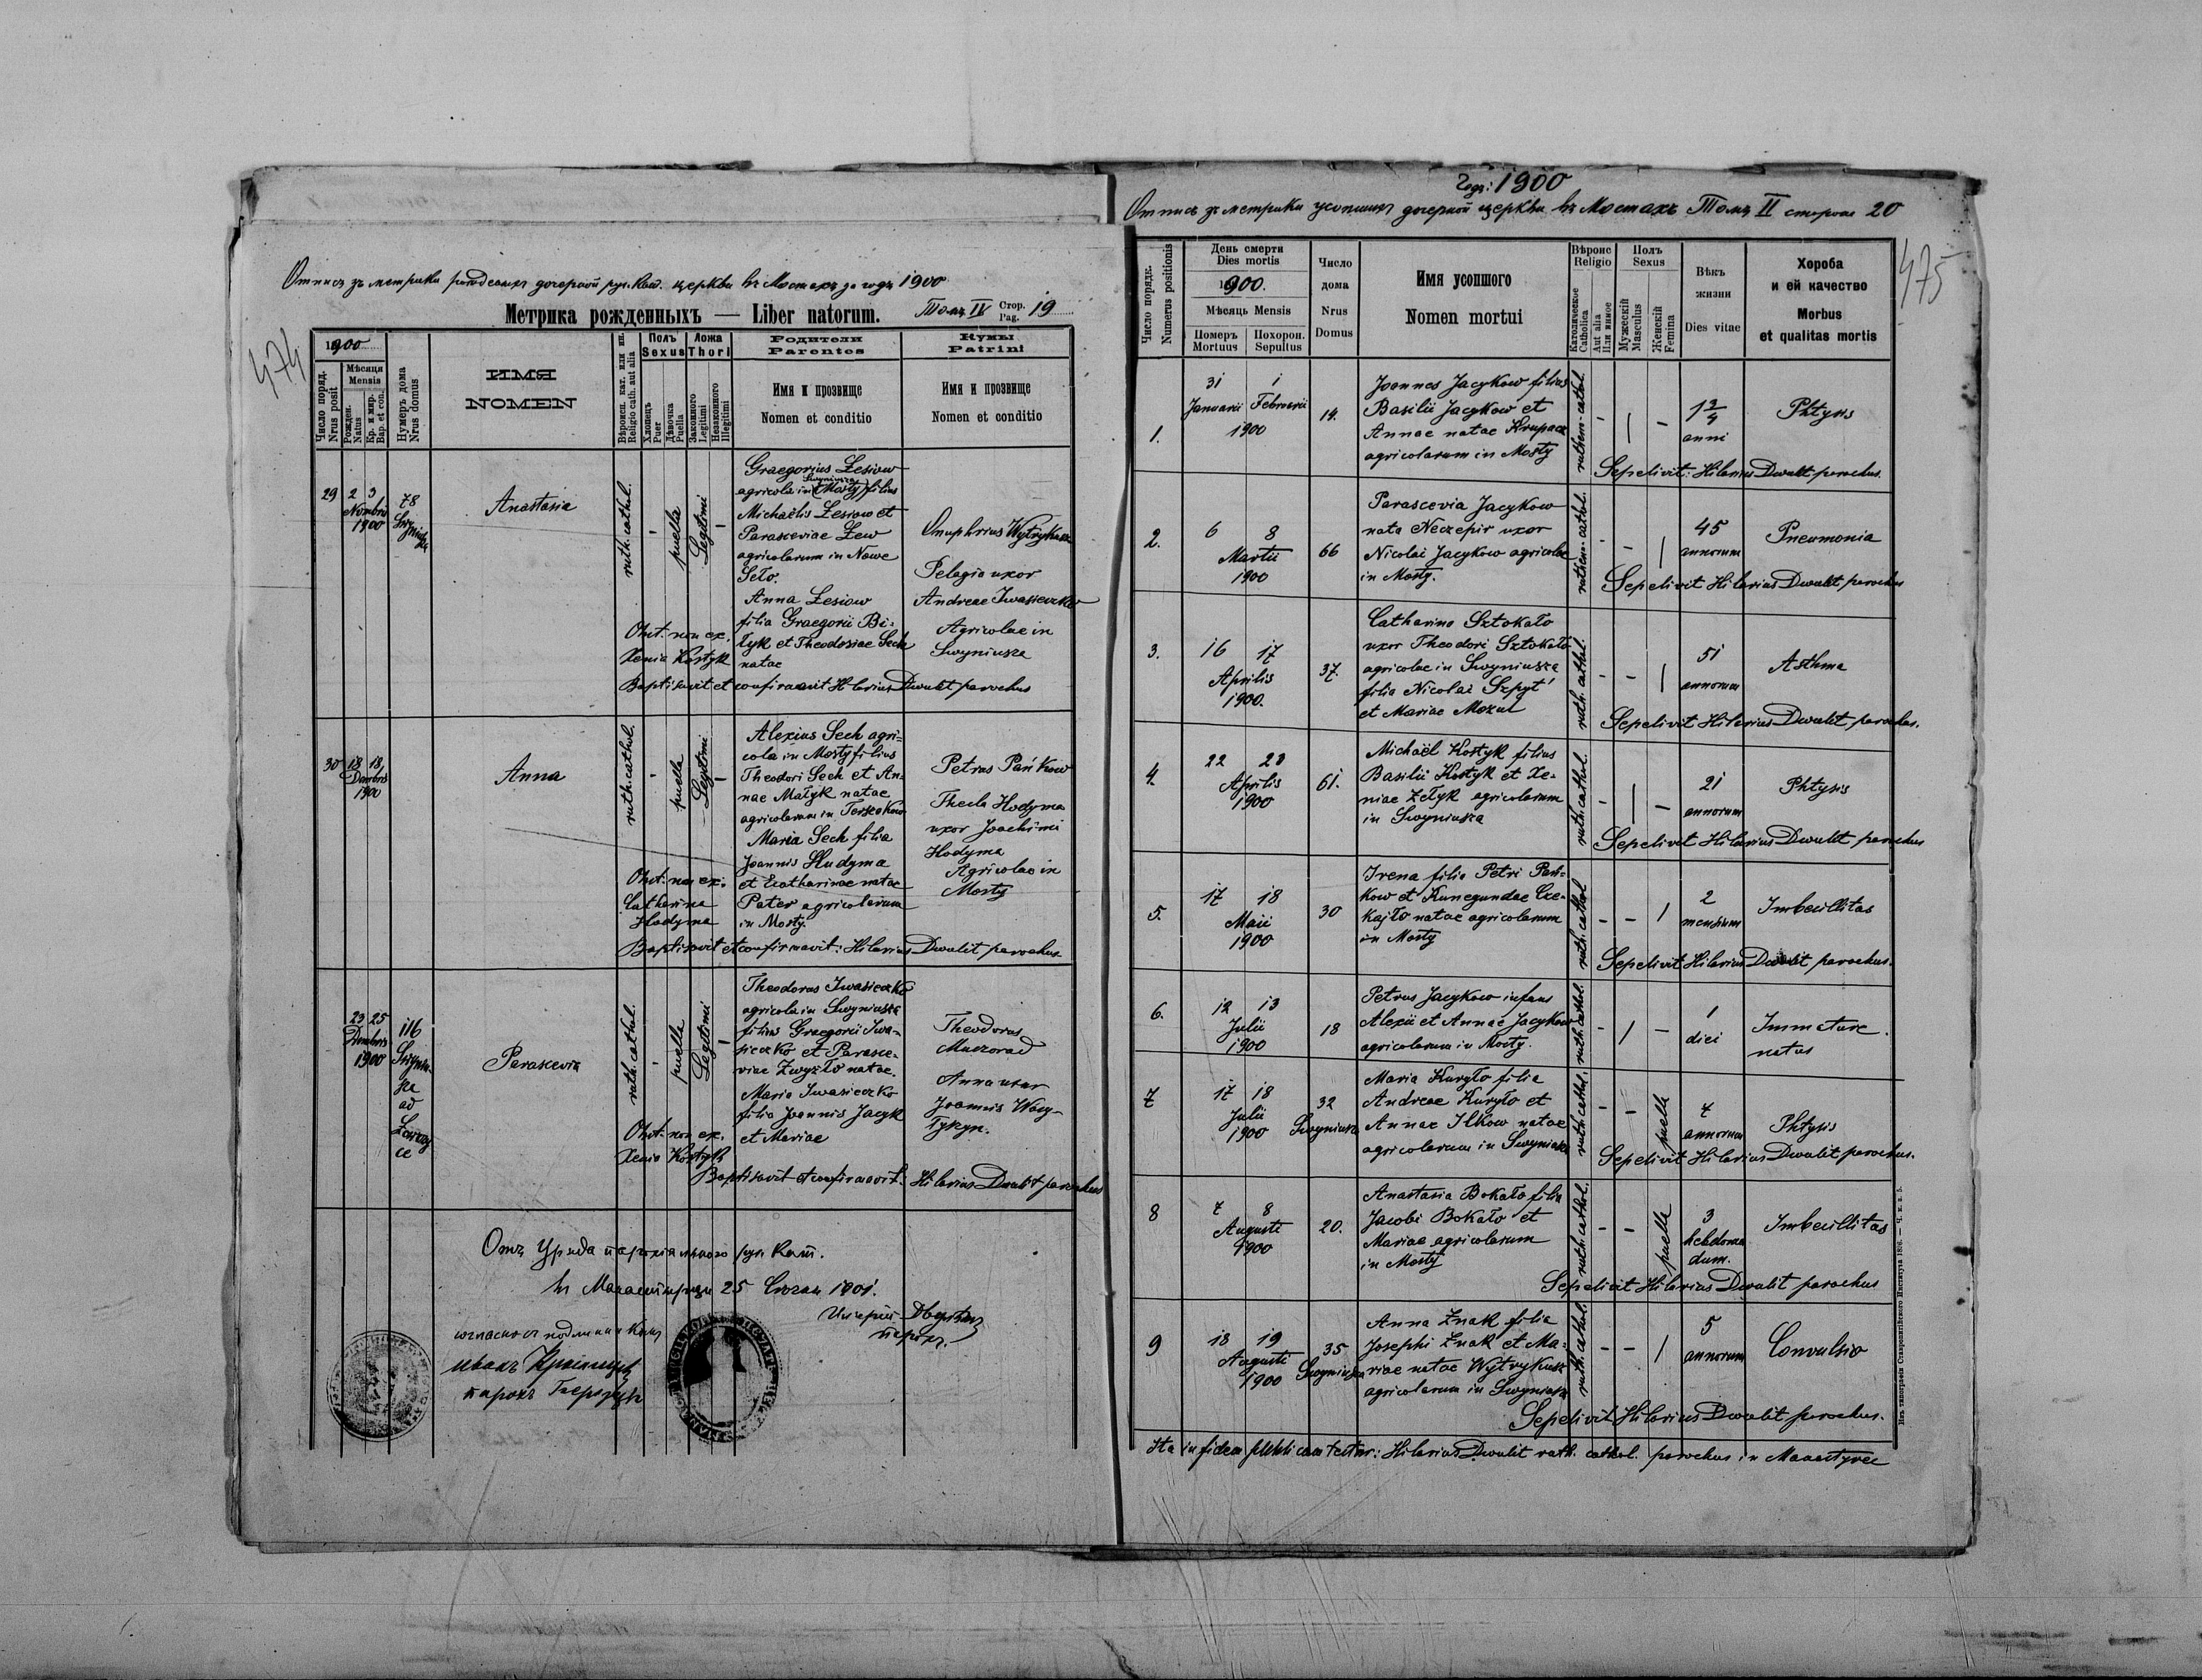 474
Отпись зъ метрики рожденыхъ дочерной рус. кат. церкви въ Мостахъ за годъ 1900
Метрика рожденныхъ — Liber natorum.
Томъ IV Стор. Pag. 19
1900
Число поряд.
Nrus posit
Мѣсяця
Mensis
Рожден.
Natus
Кр. и мир.
Bap. et con.
Нумеръ дома
Nrus domus
ИМЯ
NOMEN
Вѣроисп. кат. или ин.
Religio cath. aut alia
Полъ
Sexus
Хлопець
Puer
Дѣвочка
Puella
Ложа
Thori
Законного
Legitimi
Незаконного
Illegitimi
Родители
Parentes
Имя и прозвище
Nomen et conditio
Кумы
Patrini
Имя и прозвище
Nomen et conditio
29
2 3
Novembris
1900
78
Anastasia
ruth. cathol.
-
puella
Legitimi
-
Graegorius Łesiow
Swyniusza
agricola in (Mosty) filius
Michaëlis Łesiow et
Parasceviae Lew
agricolarum in Nowe
Seło.
Anna Łesiow
filia Graegorii Bi-
łyk et Theodosiae Sech
natae
Onuphrius Wytrykusz
Pelagia uxor
Andreae Iwasieczko
Agricolae in
Swyniusza
Obst. non ex.
Xenia Kostyk
Baptisavit et confirmavit Hilarius Dwulit parochus
30
18 18
Dembris
1900
Anna
ruth. cathol.
-
puella
Legitimi
-
Alexius Sech agri-
cola in Mosty filius
Theodori Sech et An-
nae Małyk natae
agricolarum in Terszaków
Maria Sech filia
Joannis Hudyma
et Catharinae natae
Pater agricolarum
in Mosty.
Petrus Pańkow
Thecla Hodyma
uxor Joachimi
Hodyma
Agricolae in
Mosty
Obst. non ex.
Catharina
Hodyma
Baptisavit et confirmavit: Hilarius Dwulit parochus
23 25
Dembris
1900
116
Swyniu-
sza
ad
Parascevia
ruth. cathol.
-
puella
Legitimi
-
Theodorus Iwasieczko
agricola in Swyniusza
filius Graegorii Iwa-
sieczko et Parasce-
viae Zwyzło natae.
Maria Iwasieczko
filia Joannis Jacyk
et Mariae
Theodorus
Muczorad
Anna uxor
Joannis Wasy-
łykyn.
Obst. non ex.
Xenia Kostyk
Baptisavit et confirmavit: Hilarius Dwulit parochus
Отъ Уряда парохіяльного рус. кат.
въ Манастырци 25 Січня 1901.
Иларій Двулит
парох.
согласно съ подлинникомъ
Иванъ
парохъ
475
Годъ: 1900
Отпись зъ метрики усопшихъ дочерной церкви въ Мостахъ Томъ II сторона 20
Число порядк.
Numerus positionis
День смерти
Dies mortis
1900.
Мѣсяць Mensis
Померъ
Mortuus
Похорон.
Sepultus
Число
дома
Nrus
Domus
Имя усопшого
Nomen mortui
Вѣроис
Religio
Католическое
Catholica
Aut alia
Или инное
Полъ
Sexus
Мужескій
Masculus
Женскій
Femina
Вѣкъ
жизни
Dies vitae
Хороба
и ей качество
Morbus
et qualitas mortis
1.
31 1
Januarii Februarii
1900
14.
Joannes Jacykow filius
Basilii Jacykow et
Annae natae Krupacz
agricolarum in Mosty
ruthen. cathol.
1 3/4
anni
Phtysis
Sepelivit: Hilarius Dwulit parochus.
2.
6 8
Martii
1900
66
Parascevia Jacykow
nata Neczepir uxor
Nicolai Jacykow agricolae
in Mosty.
ruthen. cathol.
45
annorum
Pneumonia
Sepelivit Hilarius Dwulit parochus
3.
16 17
Aprilis
1900.
37.
Catharina Sztokało
uxor Theodori Sztokało
agricolae in Swyniusza
filia Nicolai Szpyt
et Mariae Mazur
ruth. cathol.
51
annorum
Asthma
Sepelivit Hilarius Dwulit parochus.
4.
22 23
Aprilis
1900
61.
Michaël Kostyk filius
Basilii Kostyk et Xe-
niae Zełyk agricolarum
in Swyniusza
ruth. cathol.
21
annorum
Phtysis
Sepelivit Hilarius Dwulit parochus
5.
17 18
Maii
1900
30
Irena filia Petri Pań-
kow et Kunegundae Cze-
kajło natae agricolarum
in Mosty
ruth. cathol
2
mensium
Imbecillitas
Sepelivit Hilarius Dwulit parochus.
6.
12 13
Julii
1900
18
Petrus Jacykow infans
Alexii et Annae Jacykow
agricolarum in Mosty.
ruth. cathol.
1
diei
Immature
natus
7
17 18
Julii
1900
32
Swyniusza
Maria Kuryło filia
Andreae Kuryło et
Annae Ilkow natae
agricolarum in Swyniusza
ruth. cathol.
puella
4
annorum
Phtysis
Sepelivit Hilarius Dwulit parochus.
8
7 8
Augusti
1900
20.
Anastasia Bokało filia
Jacobi Bokało et
Mariae agricolarum
in Mosty
ruth. cathol.
puella
3
hebdoma
dum.
Imbecillitas
Sepelivit Hilarius Dwulit parochus
9
18 19
Augusti
1900
35
Swyniusza
Anna Znak filia
Josephi Znak et Ma-
riae natae Wytrykusz
agricolarum in Swyniusza
ruth. cathol.
5
annorum
Convulsio
Sepelivit Hilarius Dwulit parochus.
Ita in fidem publicam testor: Hilarius Dwulit ruth. cathol. parochus in Manastyrec
Изъ типографіи Ставропигійского Института 1896. — Ч. к. 5.